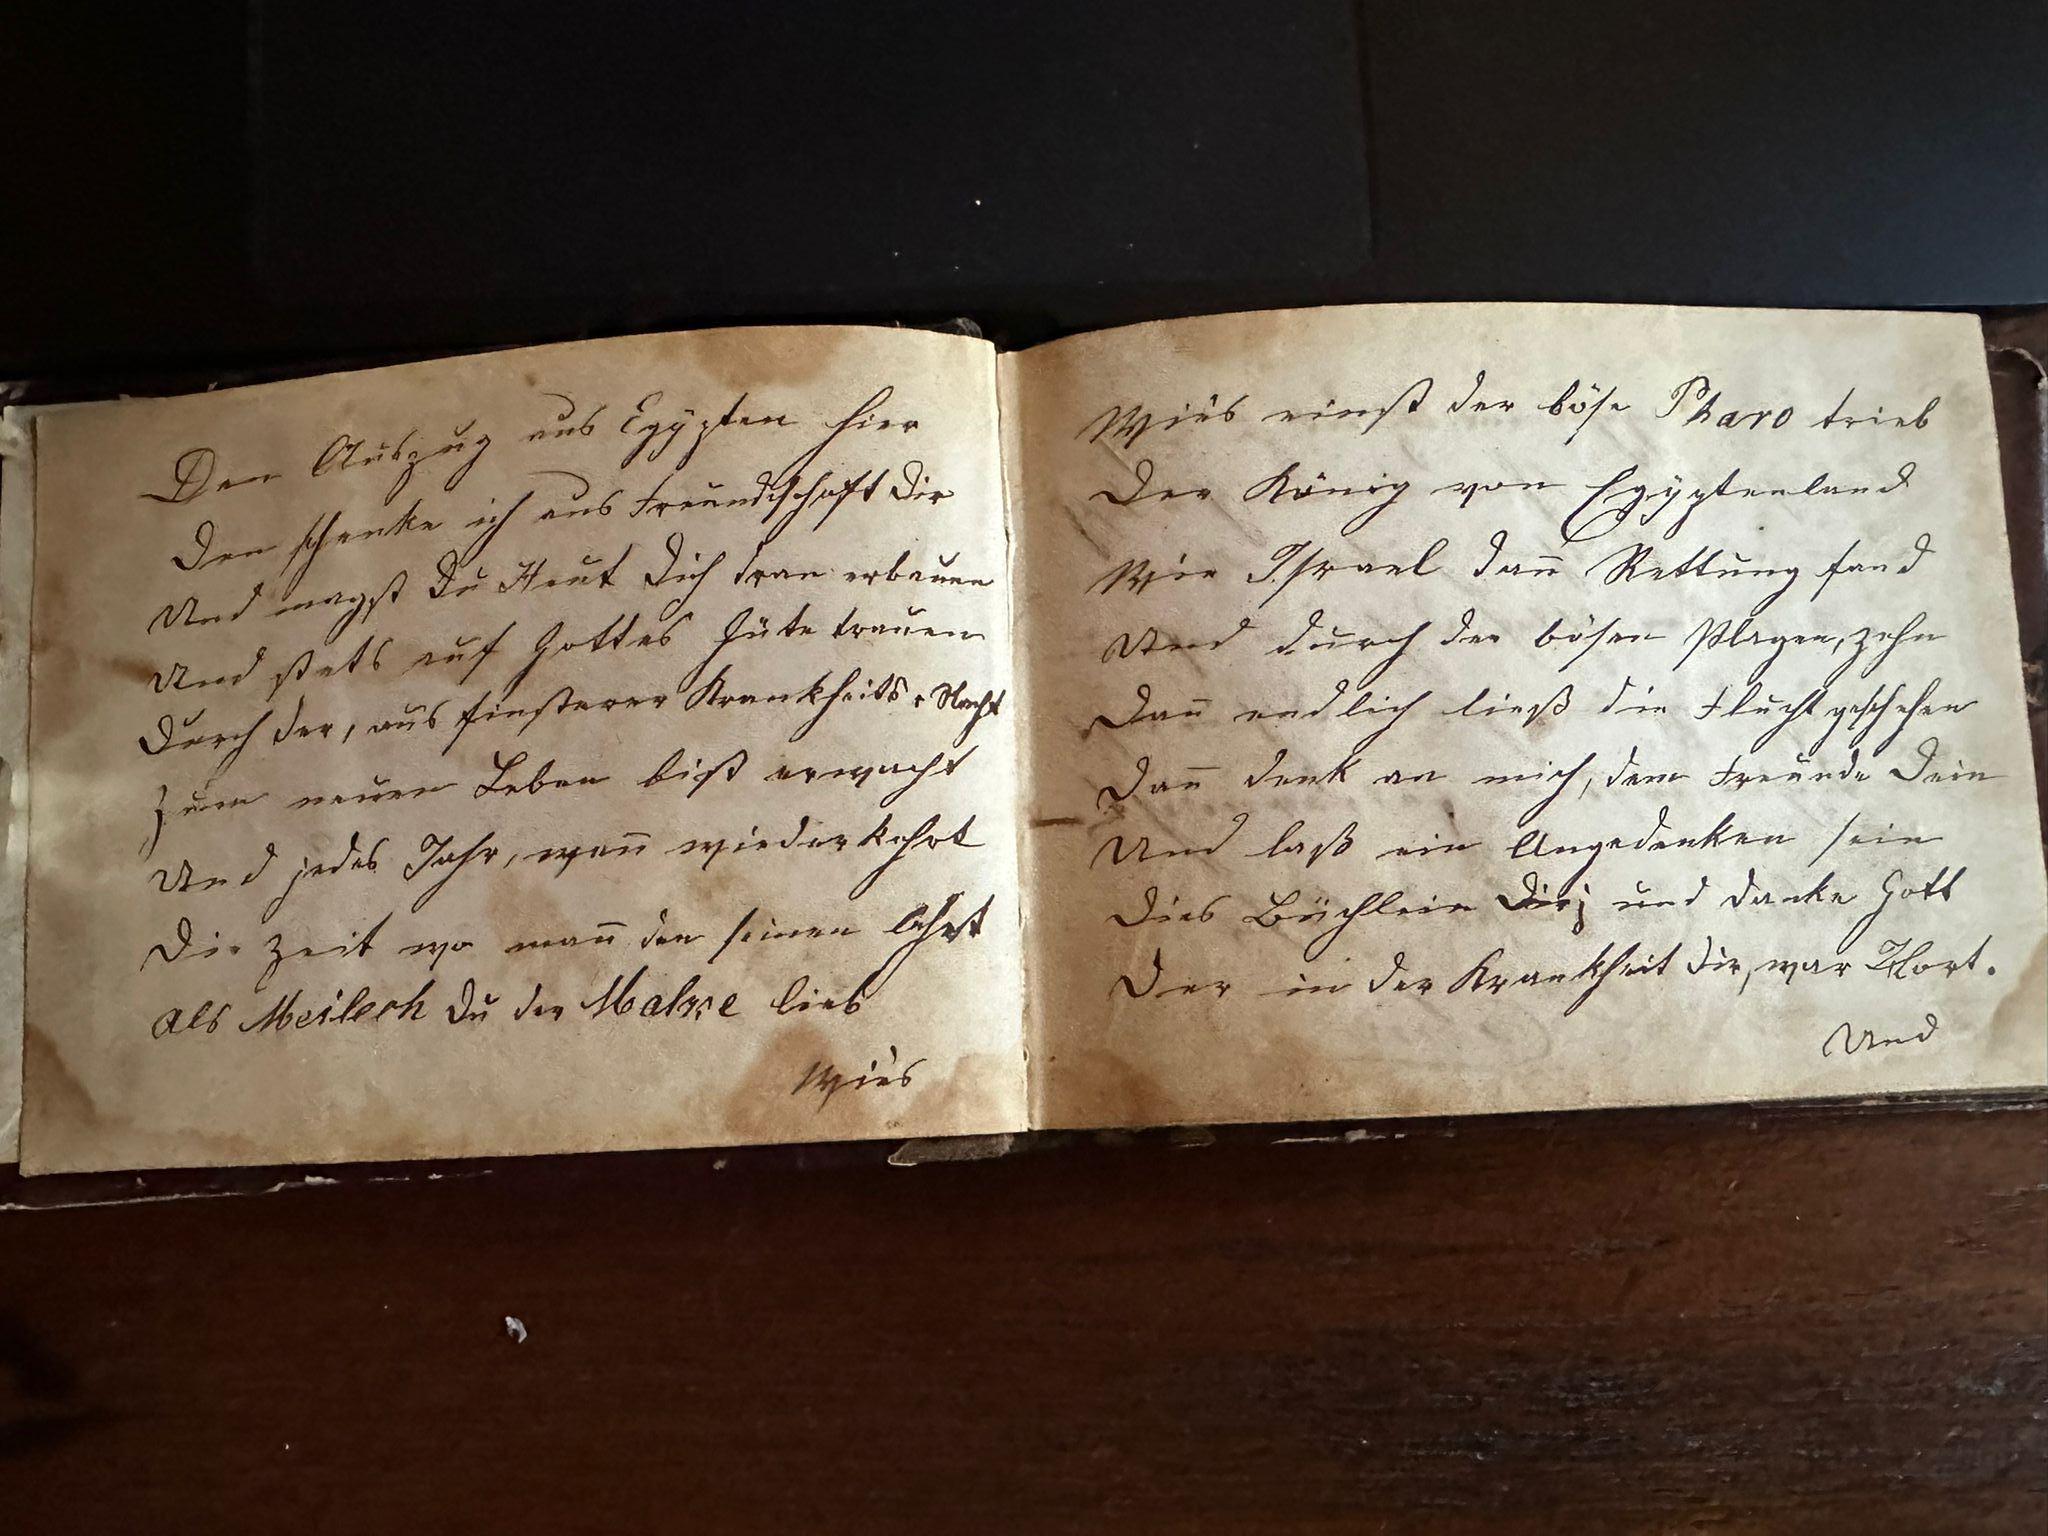 Den Auszug aus Egypten hier
Den schenke ich aus Freundschaft Dir
Und magst Du Heut Dich dran erbauen
Und stets auf Gottes Güte trauen
Durch den, aus finsterer Krankheits-Nacht
Zum neuen Leben bist erwacht
Und jedes Jahr, wan̄ wiederkehrt
Die Zeit wo man̄ den seinen lehrt
Als Meilech Du der Malke lieb
Wies
Wies einst der böse Pharo trieb
Der König von Egyptenland
Wie Israel dan̄ Rettung fand
Und durch der bösen Plagen, zehn
Dan̄ endlich ließ die Flucht geschehen
Dan̄ denk an mich, dem Freunde Dein
Und laß ein Angedenken sein
Dies Büchlein Dir; und danke Gott
Der in der Krankheit Dir, war Hort.
Und